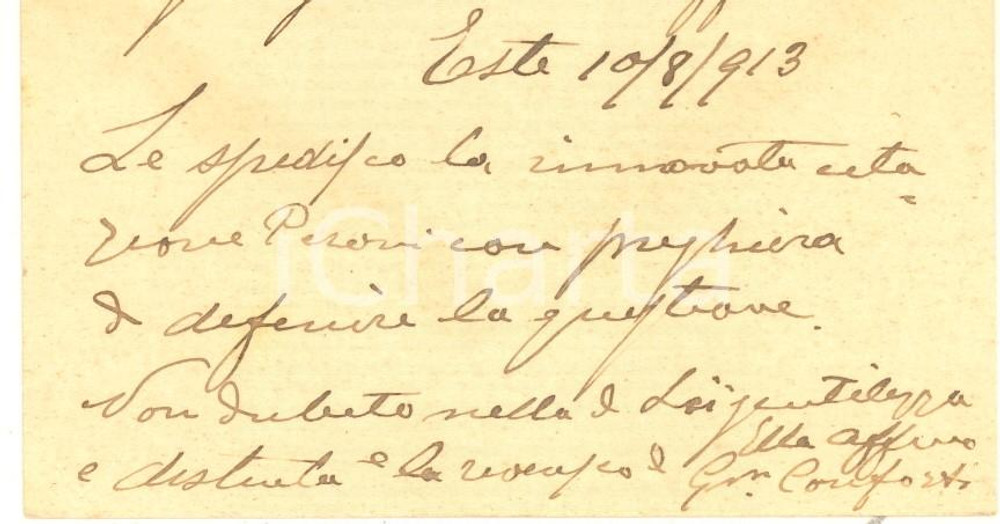 Este 10/8/913
Le spedisco la rinnovata cita-
zione Peroni con preghiera
di definire la questione.
Non dubito nella di Lei gentilezza
e distinta la
Conforti
iCharta